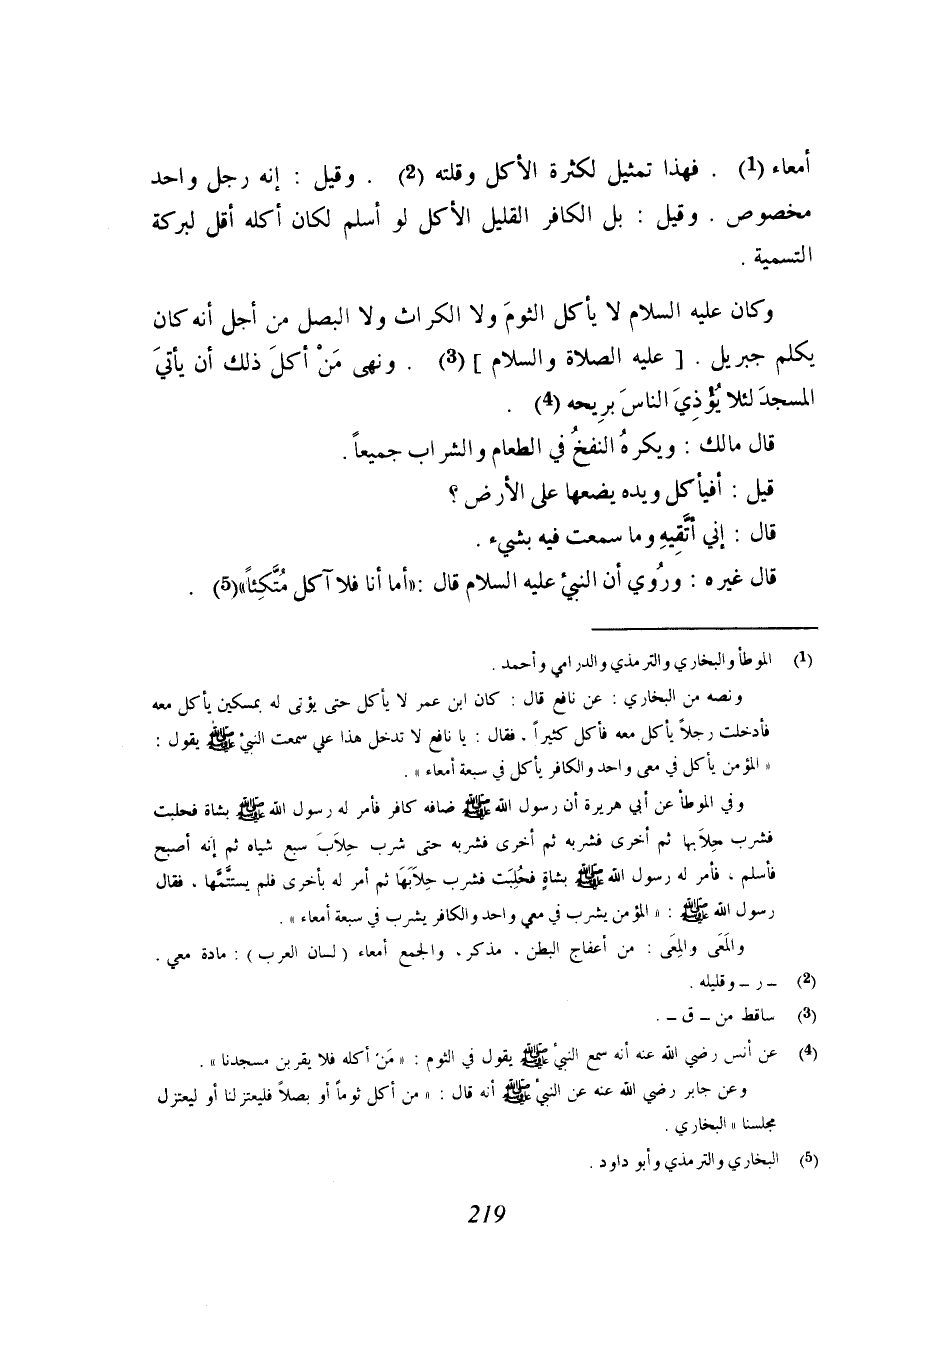 أمعاء (1) . فهذا تمثيل لكثرة الأكل وقلته (2) . وقيل : إنه رجل واحد
مخصوص . وقيل : بل الكافر القليل الأكل لو أسلم لكان أكله أقل لبركة
التسمية .
وكان عليه السلام لا يأكل الثومَ ولا الكراث ولا البصل من أجل أنه كان
يكلم جبريل . [ عليه الصلاة والسلام ] (3) . ونهى مَنْ أكلَ ذلك أن يأتيَ
المسجدَ لئلا يُؤْذِيَ الناسَ بريحه (4) .
قال مالك : ويكرهُ النفخُ في الطعام والشراب جميعاً .
قيل : أفيأكل ويده يضعها على الأرض ؟
قال : إني أتَّقِيهِ وما سمعت فيه بشيء .
قال غيره : ورُوي أن النبيْ عليه السلام قال :«أما أنا فلا آكل مُتَّكِئاً»(5) .
(1) الموطأ والبخاري والترمذي والدرامي وأحمد .
ونصه من البخاري : عن نافع قال : كان ابن عمر لا يأكل حتى يؤتى له بمسكين يأكل معه
فأدخلت رجلاً يأكل معه فأكل كثيراً . فقال : يا نافع لا تدخل هذا علي سمعت النبيْ ﷺ يقول :
« المؤمن يأكل في معى واحد والكافر يأكل في سبعة أمعاء » .
وفي الموطأ عن أبي هريرة أن رسول الله ﷺ ضافه كافر فأمر له رسول الله ﷺ بشاة فحلبت
فشرب حِلاَبها ثم أخرى فشربه ثم أخرى فشربه حتى شرب حِلاَبَ سبع شياه ثم إنه أصبح
فأسلم . فأمر له رسول الله ﷺ بشاةٍ فحُلِبَت فشرب حِلاَبَهَا ثم أمر له بأخرى فلم يستتَّمَّها . فقال
رسول الله ﷺ : « المؤمن يشرب في معي واحد والكافر يشرب في سبعة أمعاء » .
والمَعَى والمِعَى : من أعفاج البطن . مذكر . والجمع أمعاء ( لسان العرب ) : مادة معي .
(2) – ر – وقليله .
(3) ساقط من – ق – .
(4) عن أنس رضي الله عنه أنه سمع النبيْ ﷺ يقول في الثوم : « مَنْ أكله فلا يقربن مسجدنا » .
وعن جابر رضي الله عنه عن النبيْ ﷺ أنه قال : « من أكل ثوماً أو بصلاً فليعتزلنا أو ليعتزل
مجلسنا » البخاري .
(5) البخاري والترمذي وأبو داود .
219